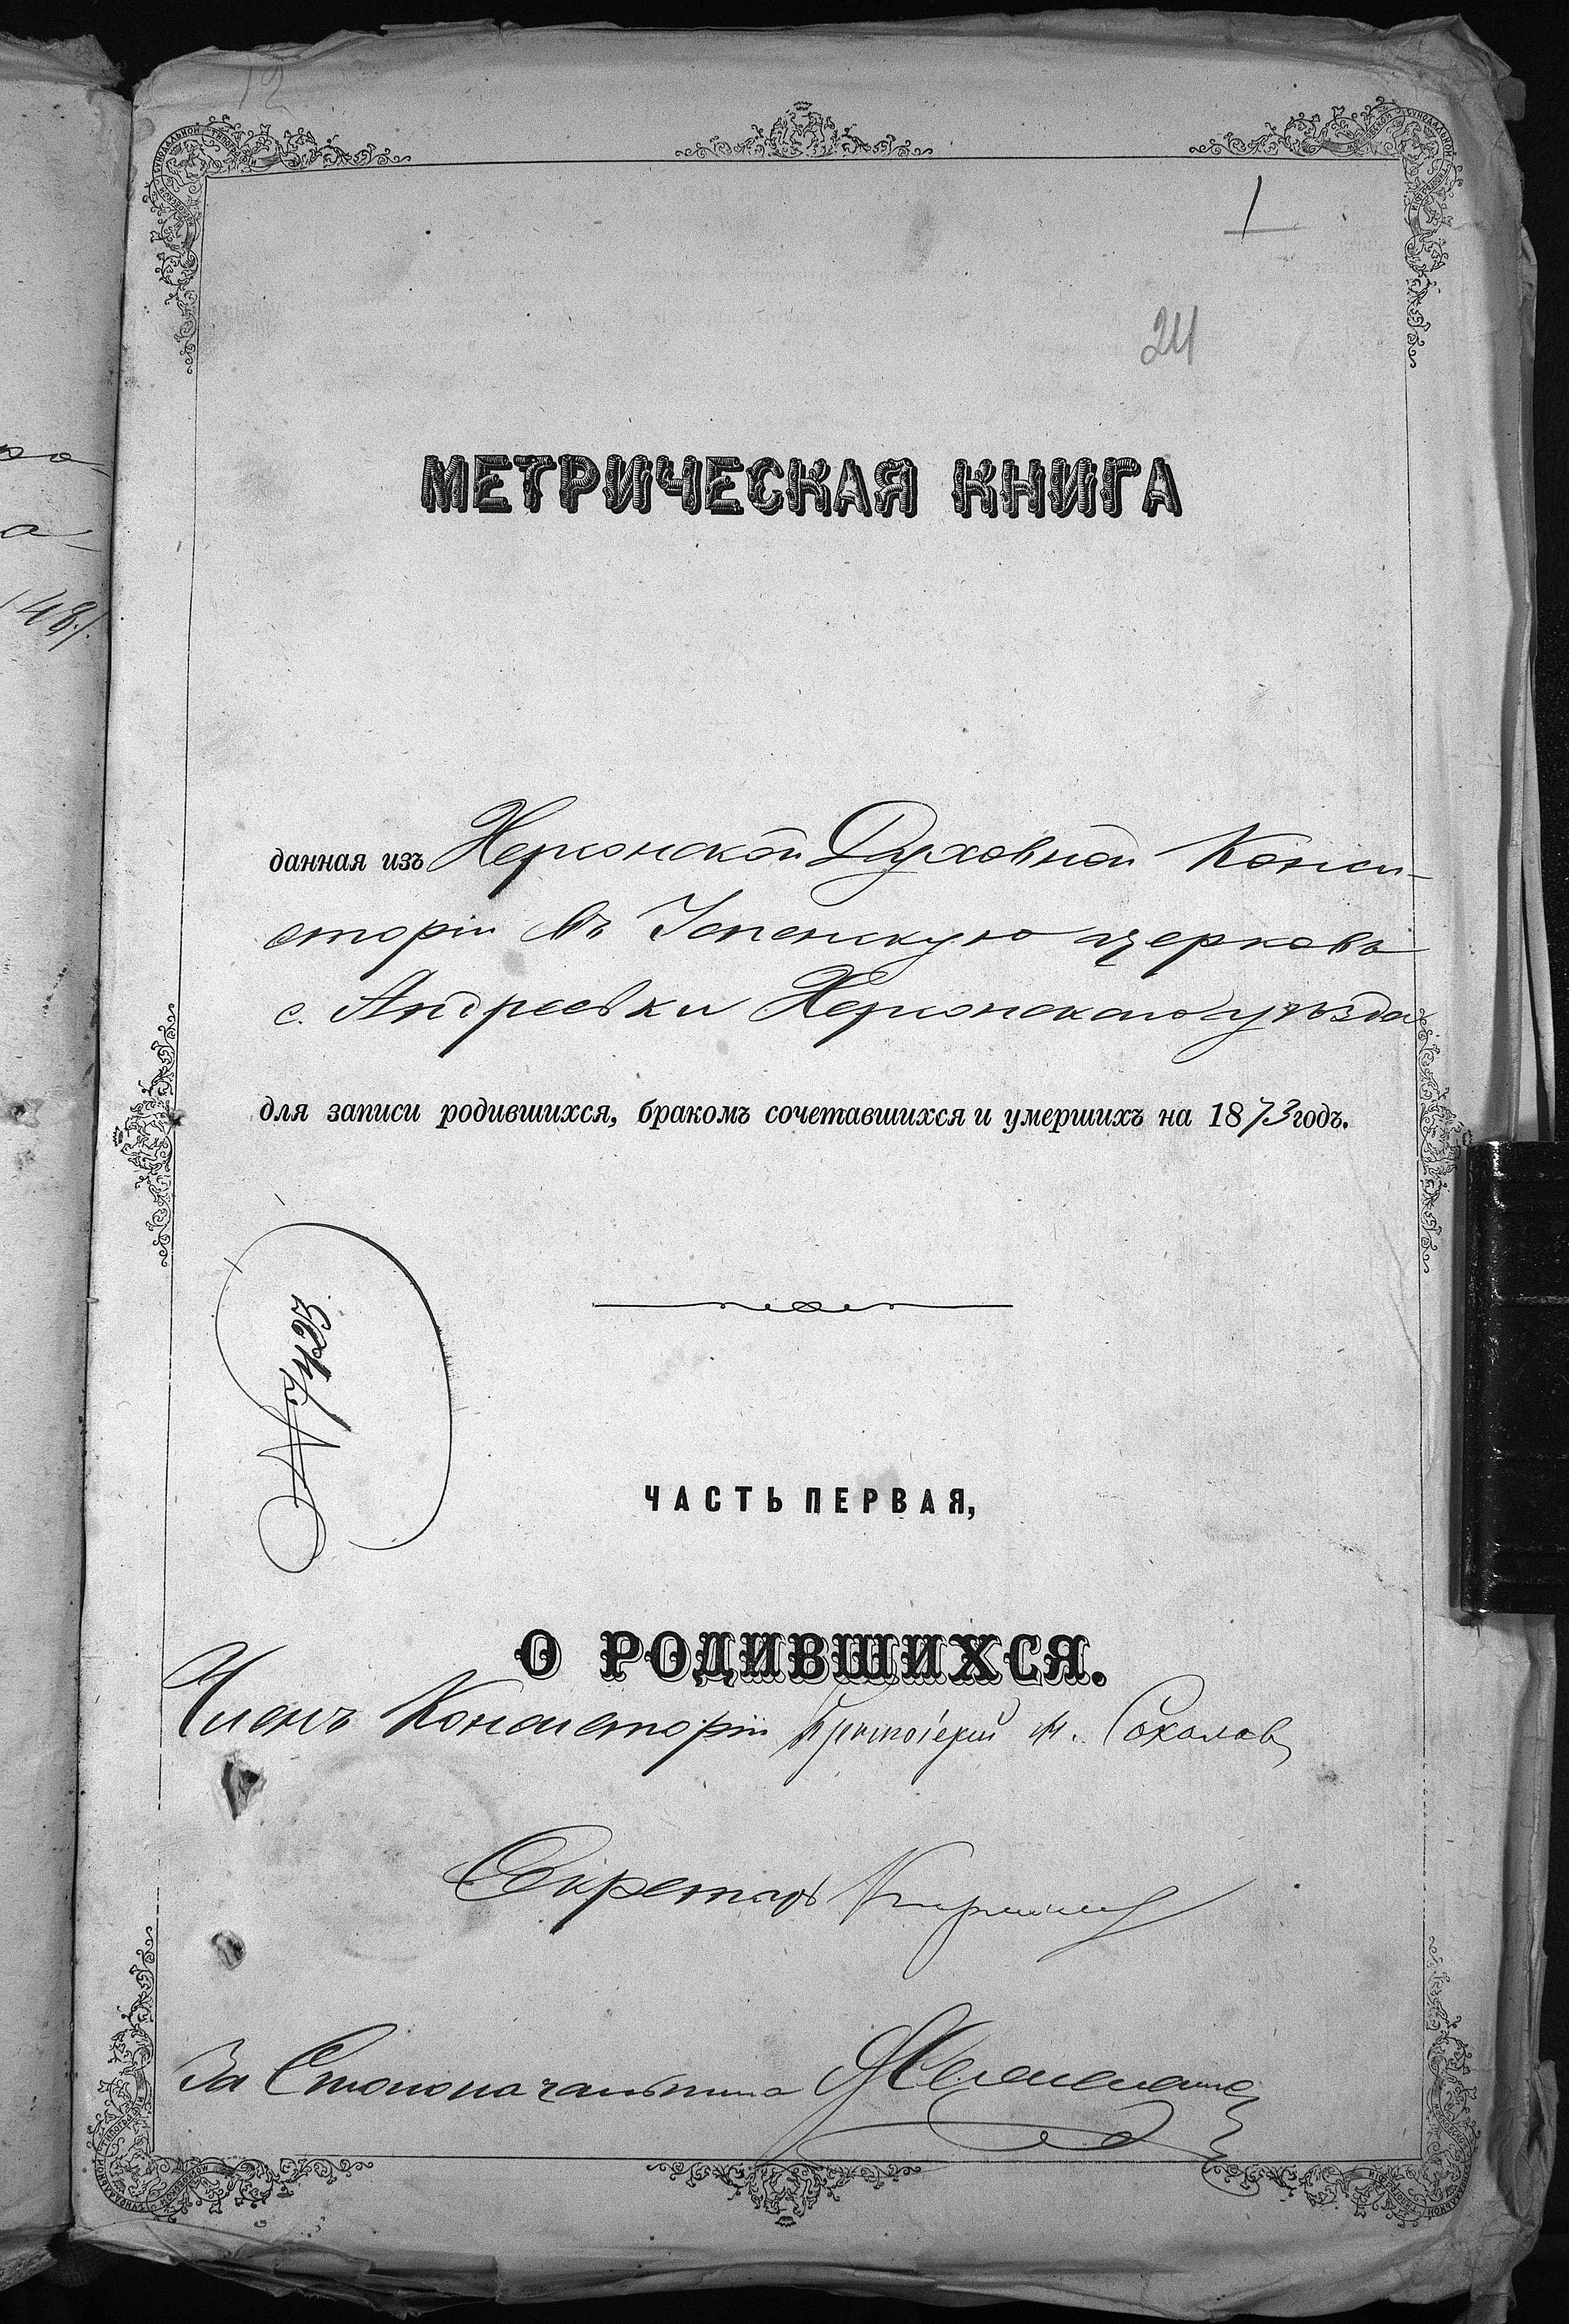 12
1
24
МЕТРИЧЕСКАЯ КНИГА
данная изъ Херсонской Духовной Конси-
сторіи въ Успенскую церковь
с. Андреевки Херсонскаго уѣзда
для записи родившихся, бракомъ сочетавшихся и умершихъ на 1873 годъ.
№ 7425
ЧАСТЬ ПЕРВАЯ,
О РОДИВШИХСЯ.
Членъ Консисторіи Протоіерей М. Соколовъ
Секретарь
За Столоначальника